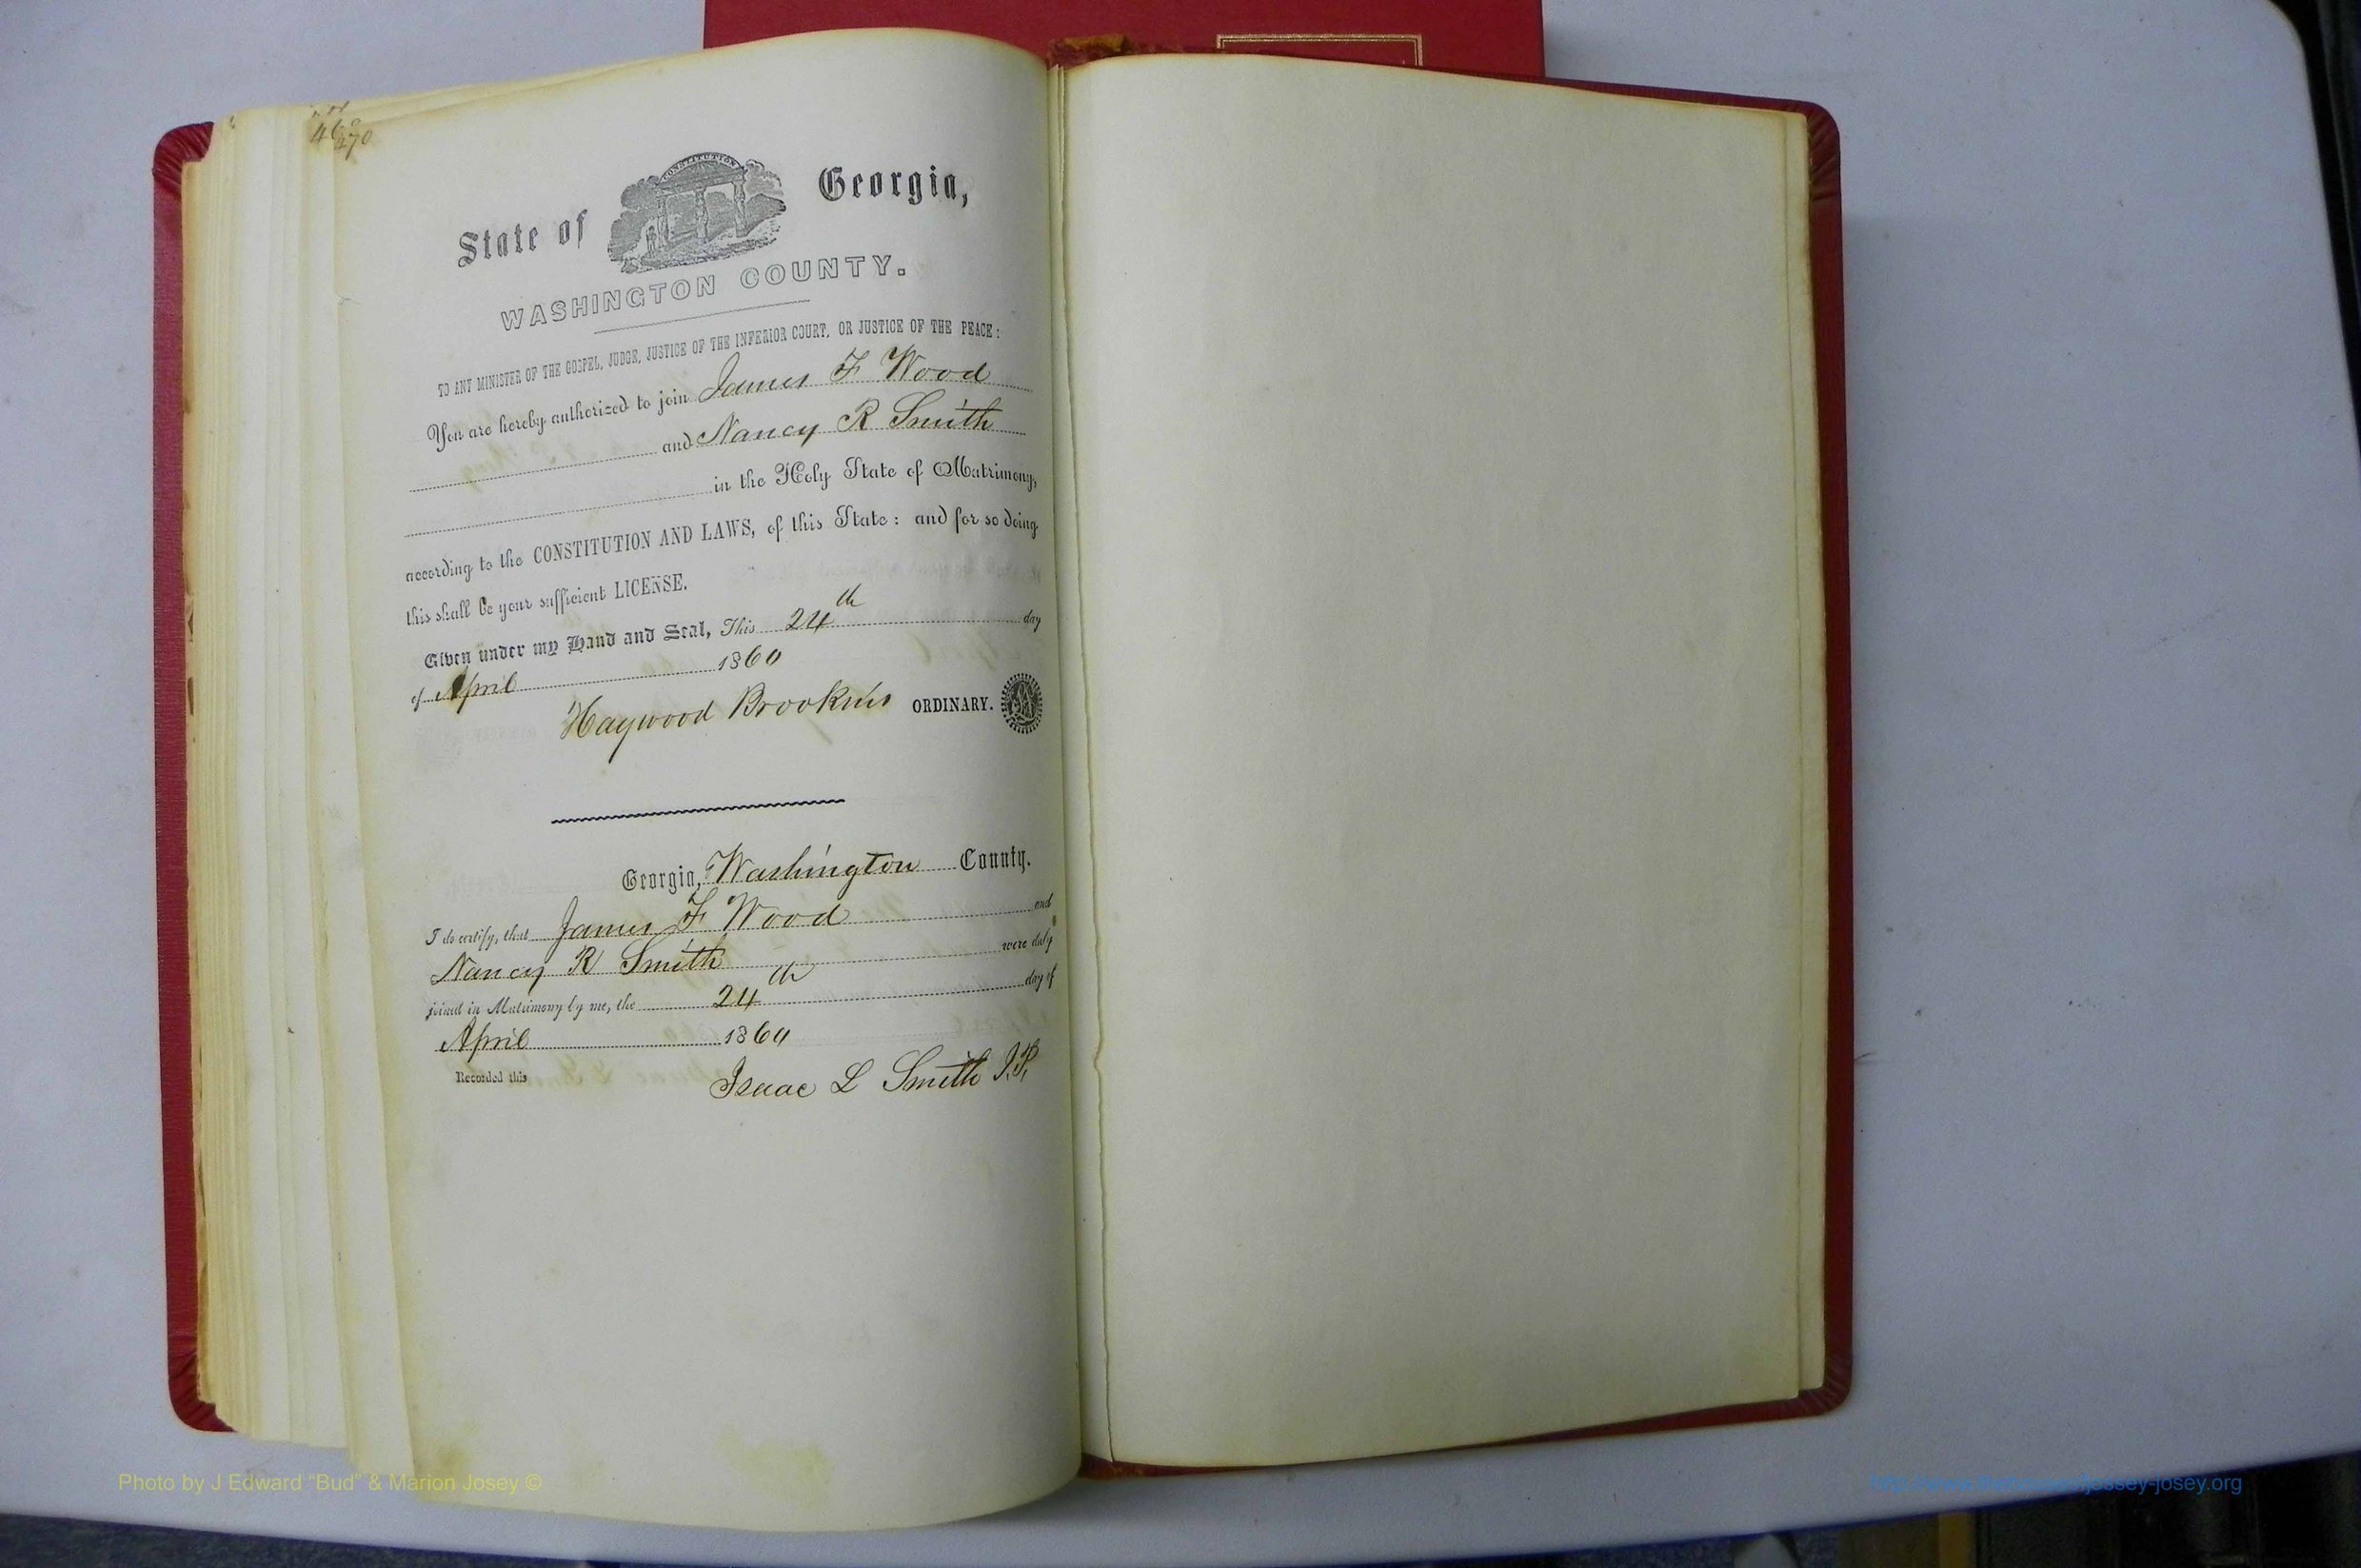 470
CONSTITUTION
State of Georgia,
WASHINGTON COUNTY.
TO ANY MINISTER OF THE GOSPEL, JUDGE, JUSTICE OF THE INFERIOR COURT, OR JUSTICE OF THE PEACE:
You are hereby authorized to join James F Wood
and Nancy R Smith
in the Holy State of Matrimony,
according to the CONSTITUTION AND LAWS, of this State: and for so doing
this shall be your sufficient LICENSE.
Given under my Hand and Seal, This 24th day
of April 1860
Haywood Brookins ORDINARY.
Georgia, Washington County.
I do certify, that James F Wood and
Nancy R Smith were duly
joined in Matrimony by me, the 24th day of
April 1860
Recorded this Isaac L Smith J.P.
Photo by J Edward “Bud” & Marion Josey ©